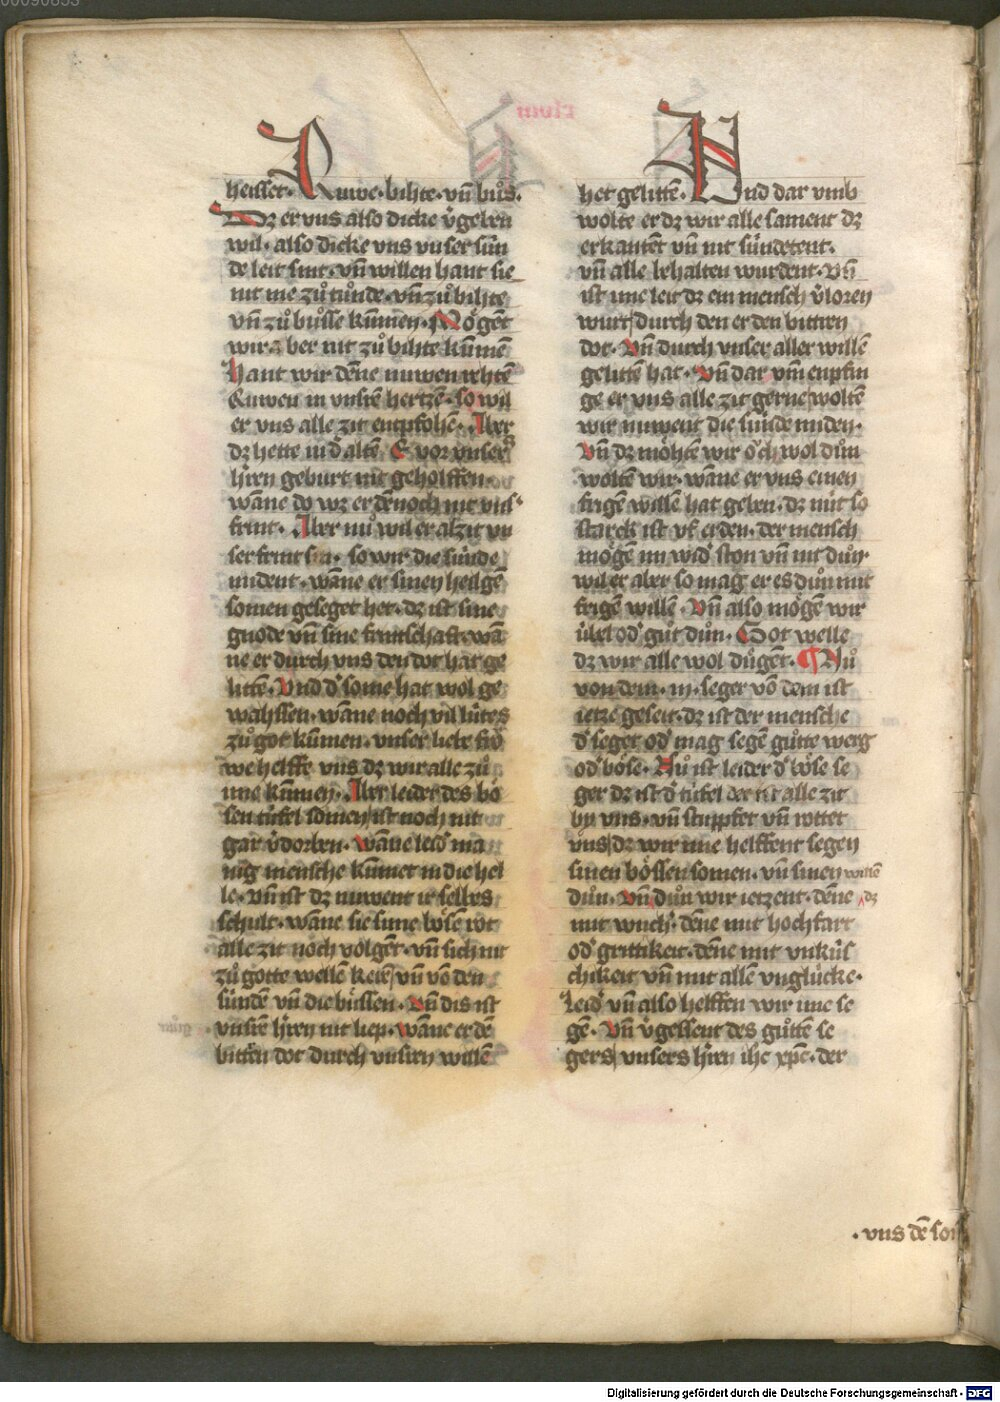 heisset· Ruwe·bihte·vn̄ bůs·
Dz er vns also dicke v̓geben
wil· also dicke vns vnser sùn
de leit sint· vn̄ willen hant sie
nit me zů tůnde· vn̄ zů bihte
vn̄ zů bůsse kūmen· Mögēt
wir aber nit zů bihte kūmē
hant wir dēne nuwen rehtē
Ruwen in vnsrē hertzē· so wil
er vns alle zit entpfohē· Aber
dz hette in d̓ altē E vor vnsers
h̓ren geburt nit geholffen·
wāne do wz er dēnoch nit vns̓
frint· Aber nů wil er alzit vn
ser frint sin· so wir die sùnde
mident· wāne er sinen heilgē
somen geseget het· dz ist sine
gnode vn̄ sine frintschaft· wā
ne er durch vns den dot hat ge
littē· Vnd d̓ some hat wol ge
wahssen· wāne noch vil lùtes
zů got kūmen· vnser liebe frō
we helffe vns dz wir alle zů
ime kūmen· Aber leider des bö
sen tùfel somen ist noch nit
gar v̓dorben· wāne leid̓ ma
nig mensche kūmet in die hel
le· vn̄ ist dz nuwent ir selbes
schult· wāne sie sime bösē rot
alle zit noch volgēt· vn̄ sich nit
zů gotte wellē kerē vn̄ vō den
sùndē vn̄ die bùssen· Vn̄ dis ist
vnsrē h̓ren nit liep· wāne er dē
bittēn dot durch vnsren willē
het gelittē· Vnd dar vmb
wolte er dz wir alle sament dz
erkantēt vn̄ nit sùndetent·
vn̄ alle behalten wurdent· Vn̄
ist ime leit dz ein mensch v̓loren
wurt durch den er den bittren
dot· Vn̄ durch vnser aller willē
gelittē hat· Vn̄ dar vm̄ enpfin
ge er vns alle zit gerne woltē
wir nuwent die sùnde miden·
Vn̄ dz möhtē wir öch wol dùn
woltē wir· wāne er vns einen
frigē willē hat geben· dz nùt so
starck ist vf erden· der mensch
mögē im wid̓ ston vn̄ nit důn·
wil er aber so mag er es důn mit
frigē willē· Vn̄ also mögē wir
ùbel od̓ gůt důn· Got welle
dz wir alle wol důgēt· ¶ Nů
von dem· m· seger vō dem ist
ietze geseit· dz ist der mensche
d̓ seget od̓ mag segē gůtte werg
od̓ böse· Nů ist leider d̓ böse se
ger dz ist d̓ tùfel der ist alle zit
by vns· vn̄ stùppfet vn̄ rottet
vns dz wir ime helffent segen
sinen bössen somen· vn̄ sinen willē
důn· Vn̄ důn wir ietzent· dēne dz
mit wuch̓· dēne mit hochfart
od̓ grittikeit· dēne mit vnkùs
chikeit vn̄ mit allē vnglùcke·
Leid̓ vn̄ also helffen wir ime se
gē· Vn̄ v̓gessent des gůttē se
gers vnsers h̓ren ihc xp̄c· der
· vns dē som
Digitalisierung gefördert durch die Deutsche Forschungsgemeinschaft - DFG